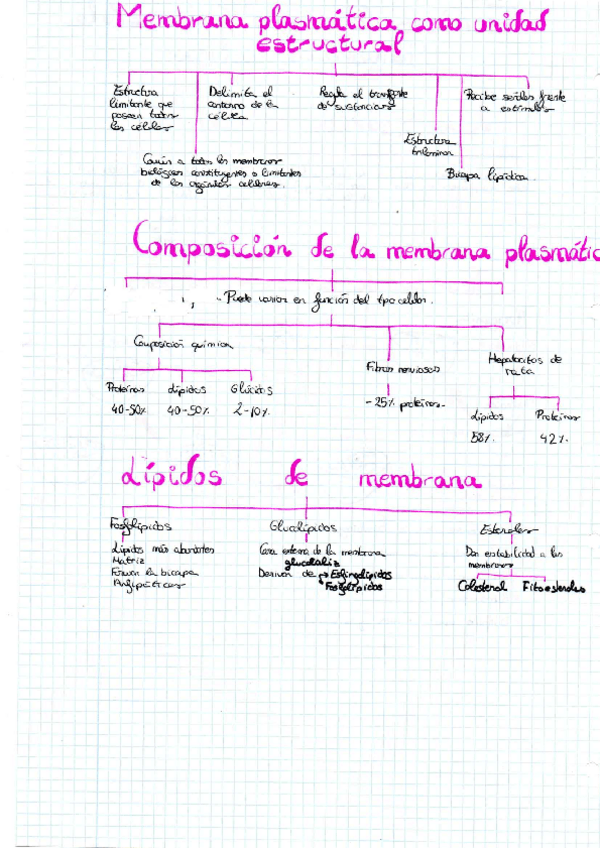 Membrana plasmática como unidad
estructural
Estructura
limitante que
poseen todas
las células
Delimita el
entorno de la
célula
Regla el transporte
de sustancias
Recibe señales frente
a estímulos
Estructura
trilaminar
Común a todas las membranas
biológicas constituyentes o limitantes
de los orgánulos celulares.
Bicapa lipídica.
Composición de la membrana plasmátic
- Puede variar en función del tipo celular.
Composición química
Fibras nerviosas
Hepatocitos de
rata
Proteínas
Lípidos
Glúcidos
40-50%
40-50%
2-10%
- 25% proteínas.
Lípidos
Proteínas
58%
42%.
Lípidos de membrana
Fosfolípidos
Glucolípidos
Esteroles
Lípidos más abundantes
Matriz
Forman la bicapa
Anfipáticos
Cara externa de la membrana
glucocaliz
Derivan de → Esfingolípidos
Fosfolípidos
Dan estabilidad a las
membranas
Colesterol
Fitoesteroles